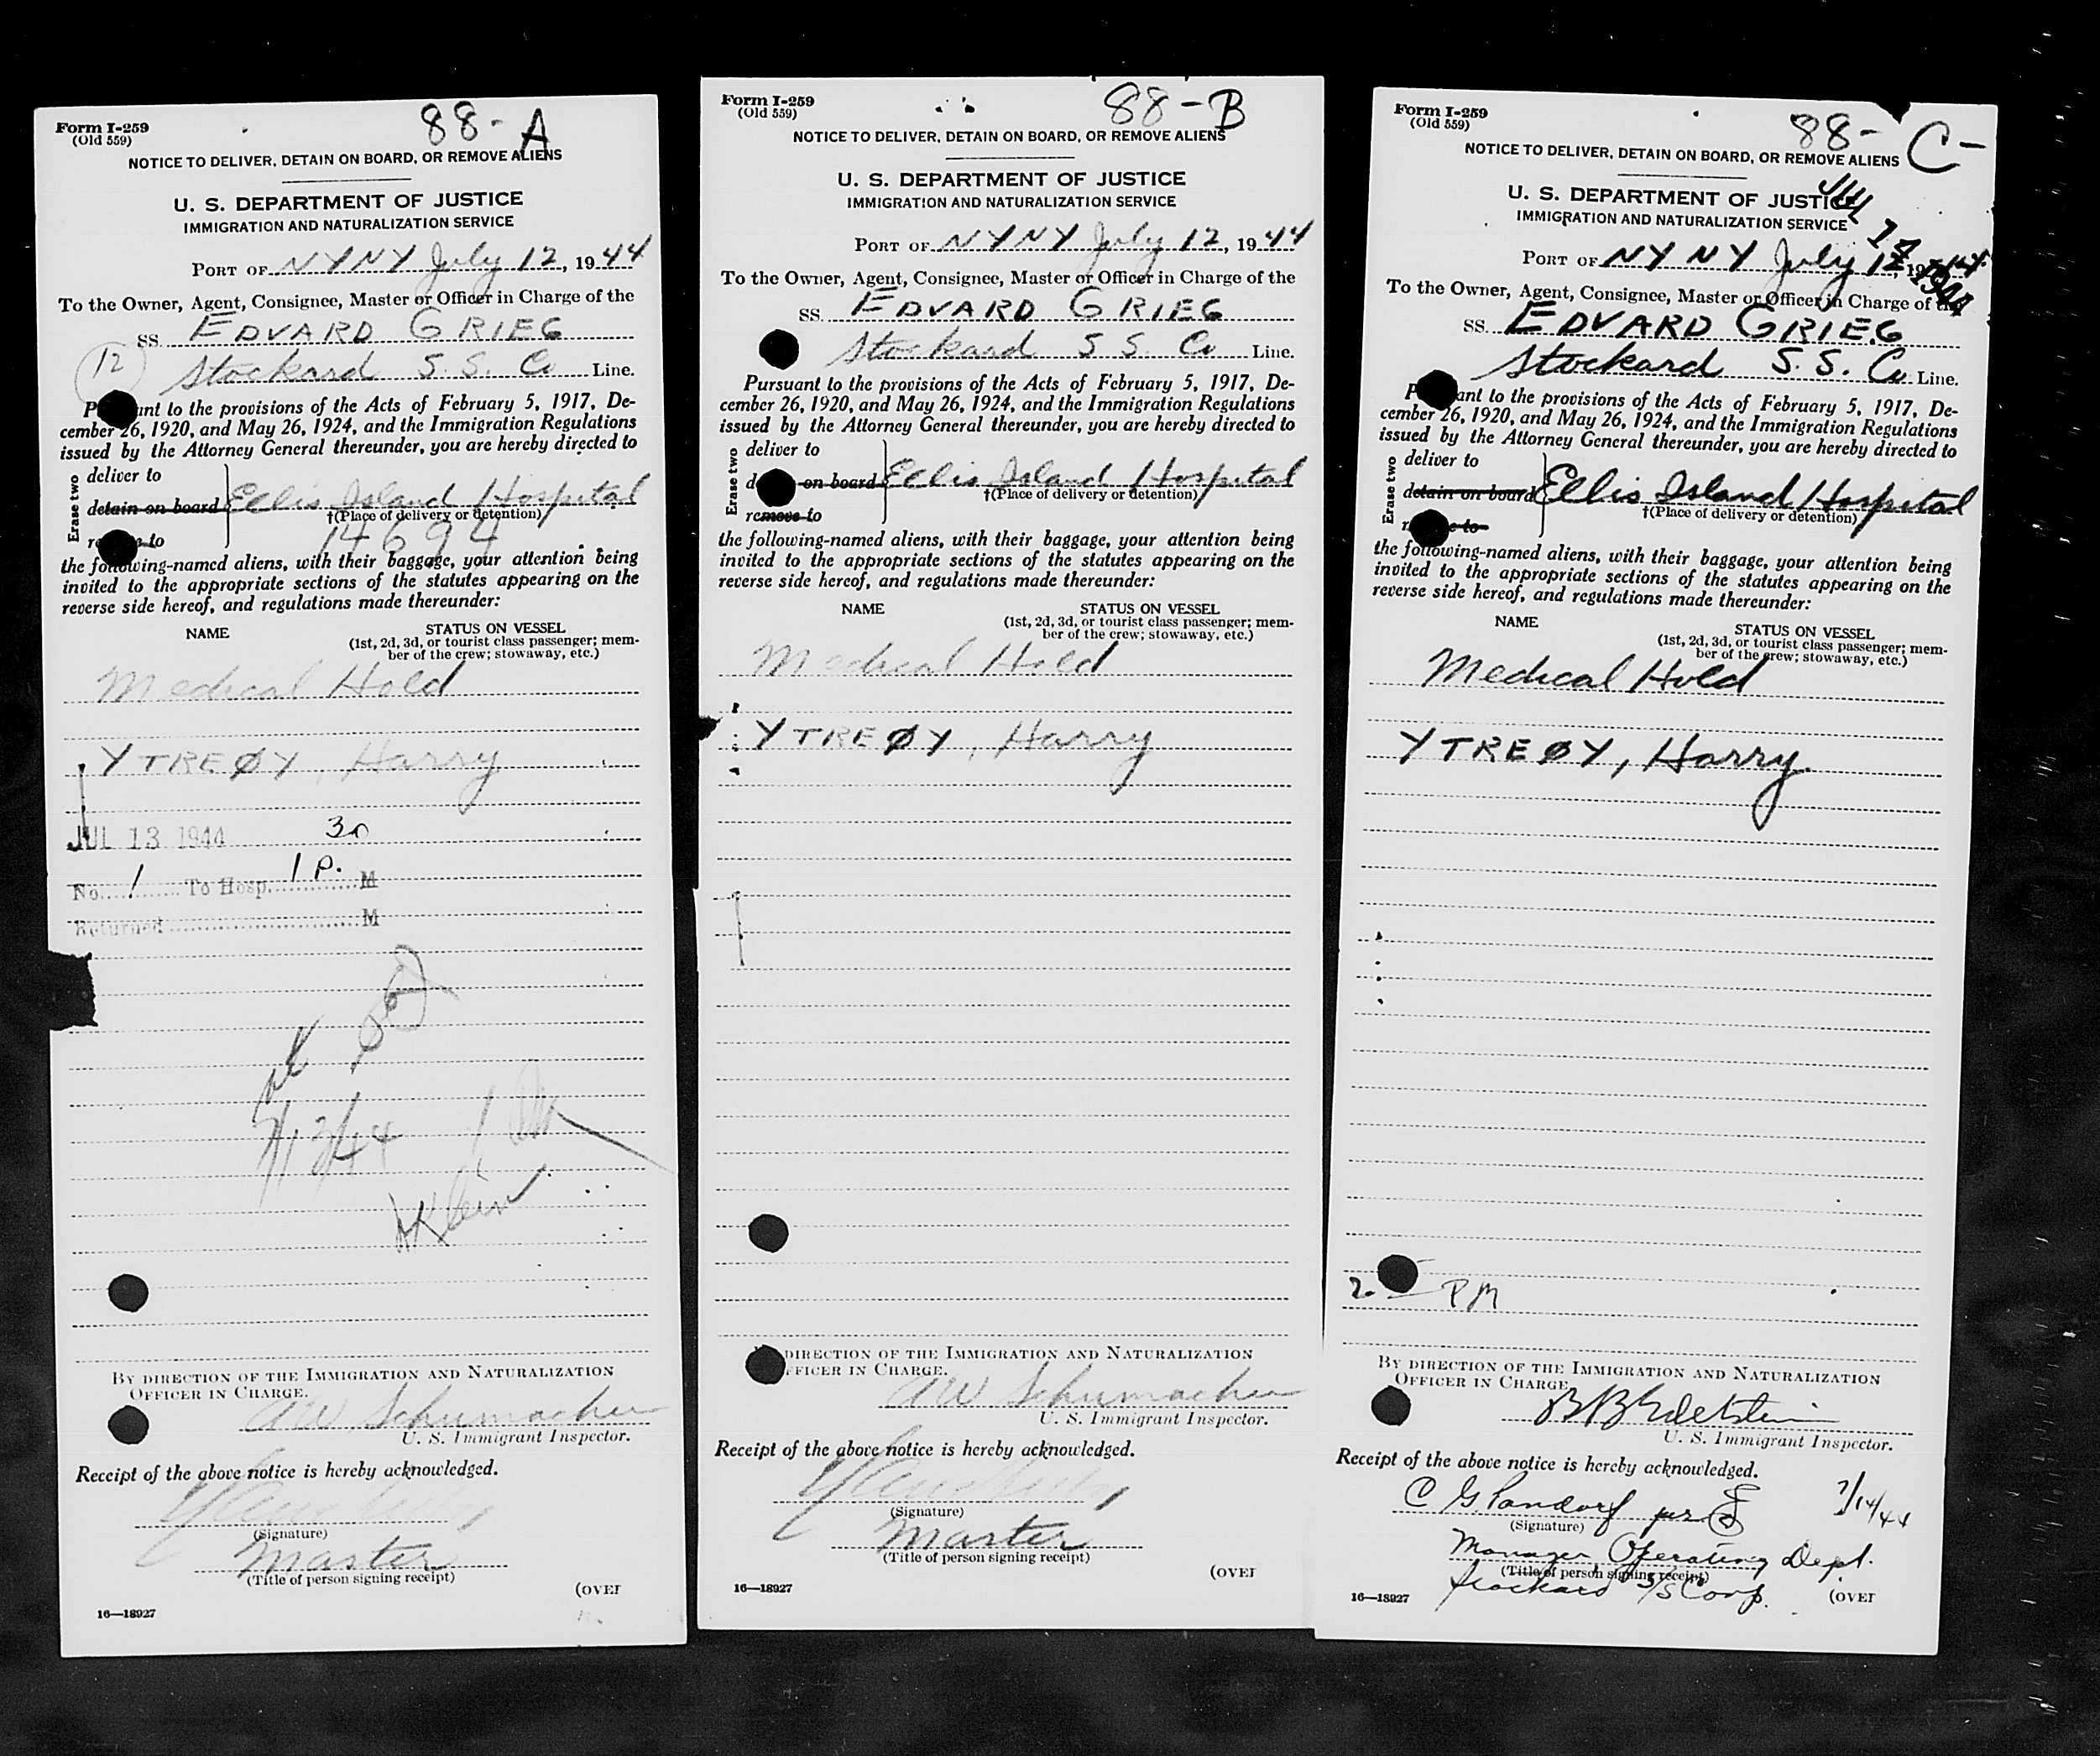 88-A
Form I-259
(Old 559)
NOTICE TO DELIVER, DETAIN ON BOARD, OR REMOVE ALIENS
U. S. DEPARTMENT OF JUSTICE
IMMIGRATION AND NATURALIZATION SERVICE
PORT OF NYNY July 12, 1944
To the Owner, Agent, Consignee, Master or Officer in Charge of the
SS. EDVARD GRIEG
12
Stockard S. S. Co Line.
P ant to the provisions of the Acts of February 5, 1917, De-
cember 26, 1920, and May 26, 1924, and the Immigration Regulations
issued by the Attorney General thereunder, you are hereby directed to
Erase two
deliver to
detain on board
re to
Ellis Island Hospital
†(Place of delivery or detention)
14694
the following-named aliens, with their baggage, your attention being
invited to the appropriate sections of the statutes appearing on the
reverse side hereof, and regulations made thereunder:
NAME
STATUS ON VESSEL
(1st, 2d, 3d, or tourist class passenger; mem-
ber of the crew; stowaway, etc.)
Medical Hold
YTREØY, Harry
JUL 13 1944
30
No. 1 To Hosp. 1 P. M
Returned M
7/13/44
Klein
BY DIRECTION OF THE IMMIGRATION AND NATURALIZATION
OFFICER IN CHARGE.
AW Schumacher
U. S. Immigrant Inspector.
Receipt of the above notice is hereby acknowledged.
(Signature)
Master
(Title of person signing receipt)
(OVER
16—18927
88-B
Form I-259
(Old 559)
NOTICE TO DELIVER, DETAIN ON BOARD, OR REMOVE ALIENS
U. S. DEPARTMENT OF JUSTICE
IMMIGRATION AND NATURALIZATION SERVICE
PORT OF NYNY July 12, 1944
To the Owner, Agent, Consignee, Master or Officer in Charge of the
SS. EDVARD GRIEG
Stockard S S. Co Line.
Pursuant to the provisions of the Acts of February 5, 1917, De-
cember 26, 1920, and May 26, 1924, and the Immigration Regulations
issued by the Attorney General thereunder, you are hereby directed to
Erase two
deliver to
d on board
remove to
Ellis Island Hospital
†(Place of delivery or detention)
the following-named aliens, with their baggage, your attention being
invited to the appropriate sections of the statutes appearing on the
reverse side hereof, and regulations made thereunder:
NAME
STATUS ON VESSEL
(1st, 2d, 3d, or tourist class passenger; mem-
ber of the crew; stowaway, etc.)
Medical Hold
YTREØY, Harry
DIRECTION OF THE IMMIGRATION AND NATURALIZATION
FFICER IN CHARGE.
AW Schumacher
U. S. Immigrant Inspector.
Receipt of the above notice is hereby acknowledged.
(Signature)
Master
(Title of person signing receipt)
(OVER
16—18927
88-C-
Form I-259
(Old 559)
NOTICE TO DELIVER, DETAIN ON BOARD, OR REMOVE ALIENS
U. S. DEPARTMENT OF JUSTICE
IMMIGRATION AND NATURALIZATION SERVICE
JUL 14 1944
PORT OF NY NY July 12, 1944
To the Owner, Agent, Consignee, Master or Officer in Charge of the
SS. EDVARD GRIEG
Stockard S. S. Co. Line.
P ant to the provisions of the Acts of February 5, 1917, De-
cember 26, 1920, and May 26, 1924, and the Immigration Regulations
issued by the Attorney General thereunder, you are hereby directed to
Erase two
deliver to
detain on board
r e to
Ellis Island Hospital
†(Place of delivery or detention)
the following-named aliens, with their baggage, your attention being
invited to the appropriate sections of the statutes appearing on the
reverse side hereof, and regulations made thereunder:
NAME
STATUS ON VESSEL
(1st, 2d, 3d, or tourist class passenger; mem-
ber of the crew; stowaway, etc.)
Medical Hold
YTREØY, Harry
2. PM
BY DIRECTION OF THE IMMIGRATION AND NATURALIZATION
OFFICER IN CHARGE
BB Edelstein
U. S. Immigrant Inspector.
Receipt of the above notice is hereby acknowledged.
C G. Pandorf per 7/14/44
(Signature)
Manager Operating Dept.
(Title of person signing receipt)
Stockard S/S Corp.
(OVER
16—18927